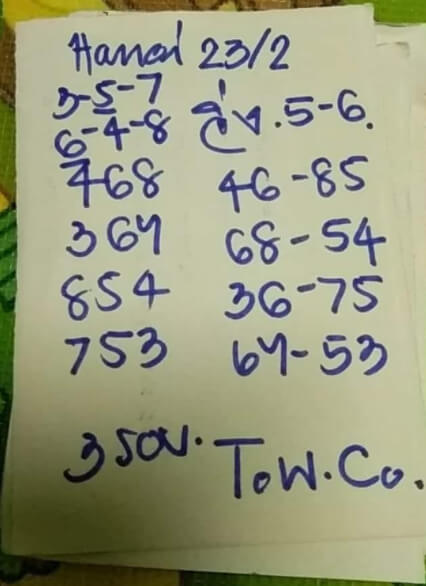 Hanoi 23/2
3-5-7
6-4-8 วิ่ง.5-6.
468 46-85
364 68-54
854 36-75
753 64-53
T.W.Co.